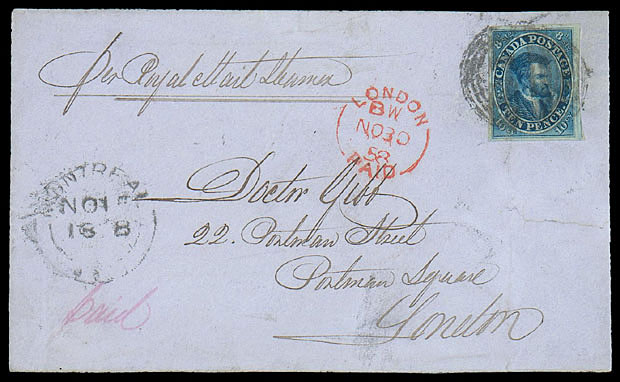 per Royal Mail Steamer
8 CANADA POSTAGE 8
TEN PENCE
10
LONDON
BW
NO 30
58
PAID
MONTREAL
NO 1
18 8
Doctor Gibb
22. Portman Street
Portman Square
London
Paid